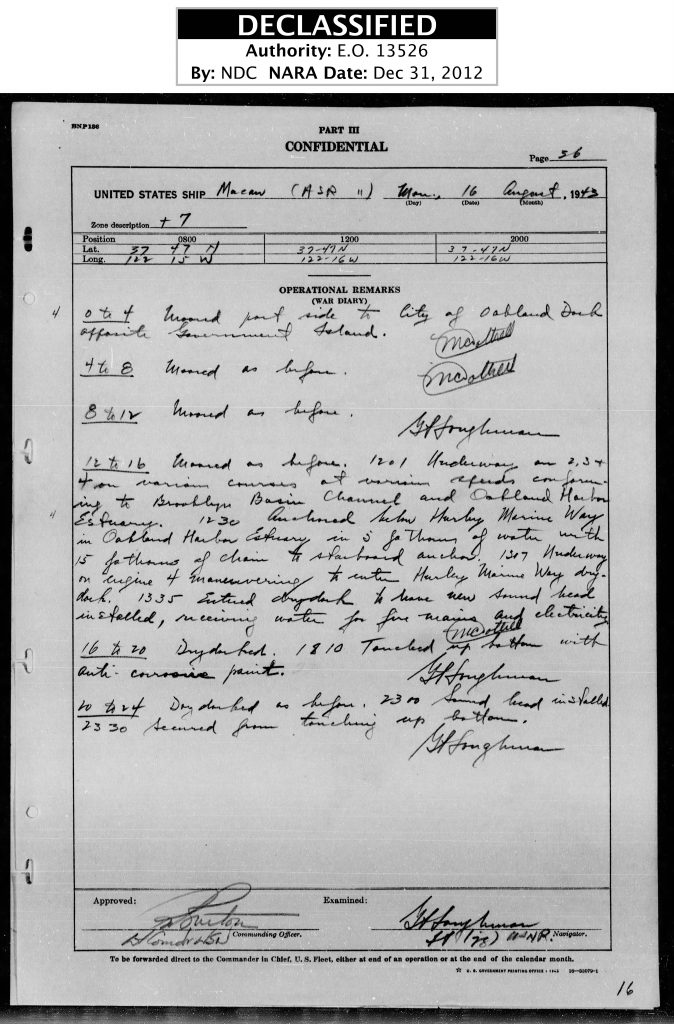 DECLASSIFIED
Authority: E.O. 13526
By: NDC NARA Date: Dec 31, 2012
BNP136
PART III
CONFIDENTIAL
Page 36
UNITED STATES SHIP Macaw (ASR 11) Mon., 16 August, 1943
(Day) (Date) (Month)
Zone description +7
Position 0800 1200 2000
Lat. 37 47 N 37-47N 37-47N
Long. 122 15 W 122-16W 122-16W
OPERATIONAL REMARKS
(WAR DIARY)
4 0 to 4 Moored port side to City of Oakland Dock
opposite Government Island.
4 to 8 Moored as before.
8 to 12 Moored as before.
G F Loughman
12 to 16 Moored as before. 1201 Underway on 2, 3 +
4 on various courses at various speeds conform-
ing to Brooklyn Basin Channel and Oakland Harbor
4 Estuary. 1230 Anchored below Hurley Marine Way
in Oakland Harbor Estuary in 5 fathoms of water with
15 fathoms of chain to starboard anchor. 1307 Underway
on engine 4 maneuvering to enter Hurley Marine Way dry-
dock. 1335 Entered drydock to have new sound head
installed, receiving water for fire mains and electricity.
16 to 20 Drydocked. 1810 Touched up bottom with
anti-corrosive paint.
G F Loughman
20 to 24 Drydocked as before. 2300 Sound head installed.
2330 secured from touching up bottom.
G F Loughman
Approved: Examined:
P W Burton G F Loughman
Lt Comdr USN Commanding Officer. Lt (jg) USNR. Navigator.
To be forwarded direct to the Commander in Chief, U. S. Fleet, either at end of an operation or at the end of the calendar month.
U. S. GOVERNMENT PRINTING OFFICE : 1943 16-33079-1
16